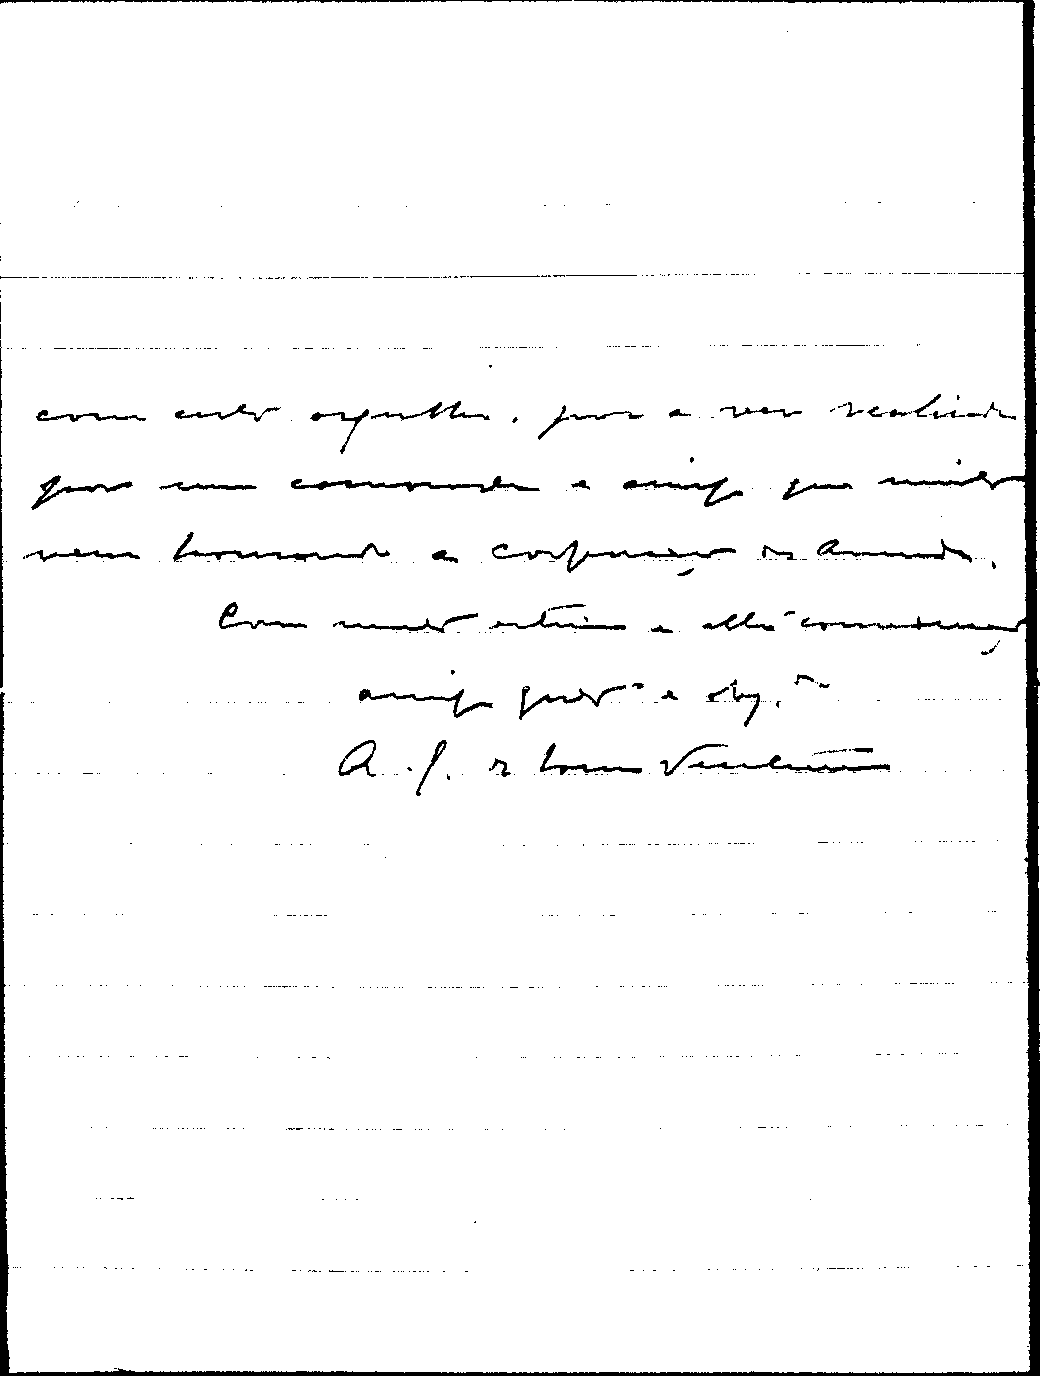 com certo orgulho, por a ver realizada
por um camarada e amigo que muito
vem honrando a corporação da Armada.
Com muita estima e alta consideração
amigo grato e obg.
A. J. de Souza